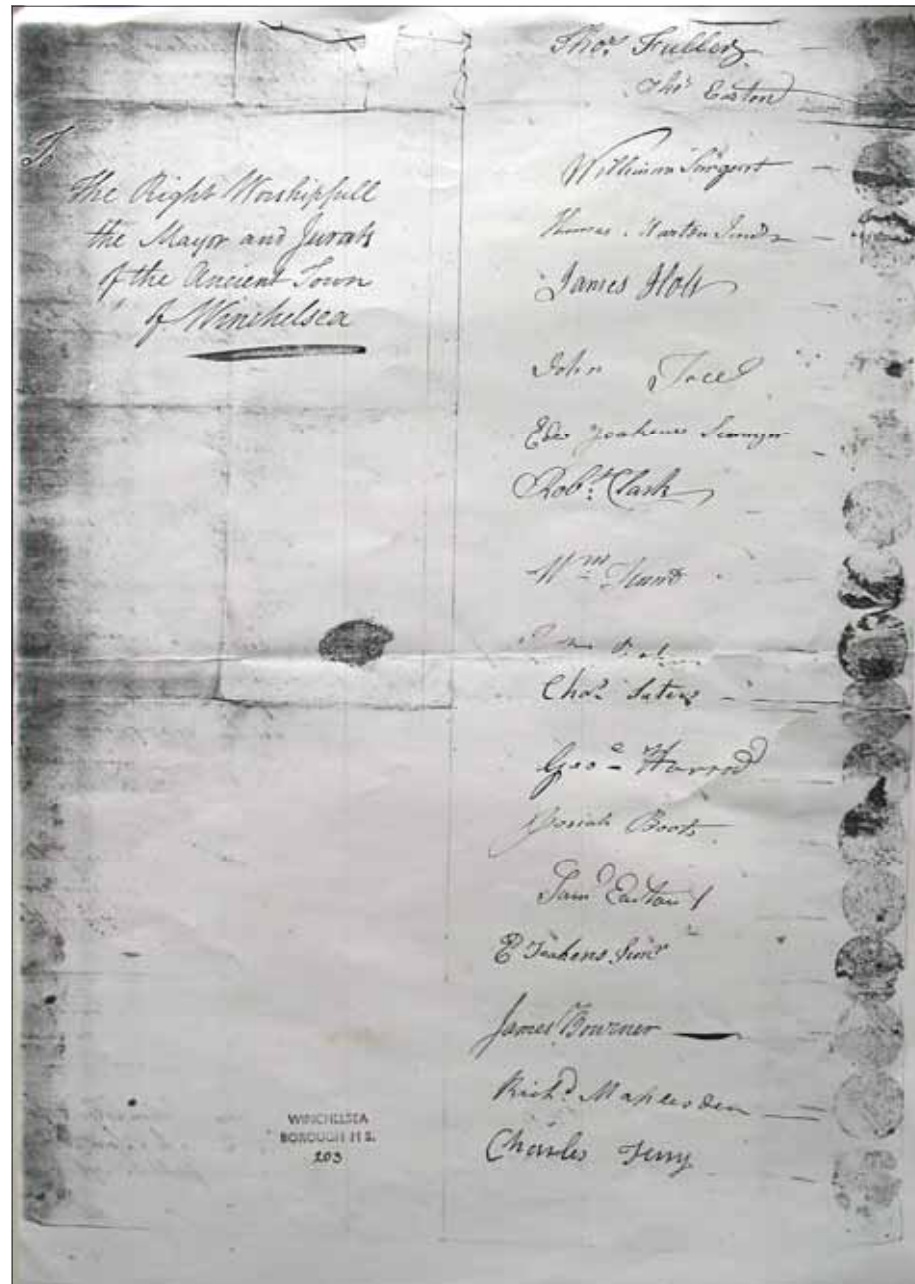 To
The Right Worshipfull
the Mayor and Jurats
of the Ancient Town
of Winchelsea
WINCHELSEA
BOROUGH M S.
203
Thos. Fuller
Thos Easton
William Sargent
Thomas Marten
James Holt
John
Edw
Robt. Clark
Wm
Chas.
Geo Harrod
Josiah Boots
Saml Easton
E Joakens Senr
James Bourner
Richd Maplesden
Charles Terry